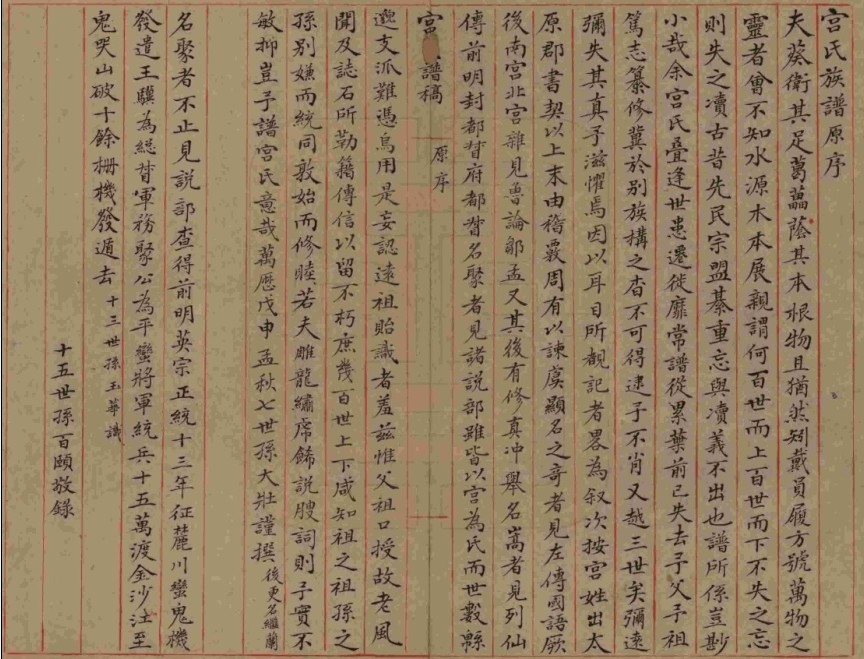 宮氏族譜原序
夫葵衛其足葛藟蔭其本根物且猶然矧戴員履方號萬物之
靈者曾不知水源木本展親謂何百世而上百世而下不失之忘
則失之凟古昔先民宗盟綦重忘與凟義不出也譜所係豈尠
小哉余宮氏疊逢世患遷徙靡常譜從累葉前已失去予父予祖
篤志纂修冀於別族搆之杳不可得逮予不肖又越三世矣彌遠
彌失其真予滋懼焉因以耳目所覩記者畧為叙次按宮姓出太
原郡書契以上末由稽覈周有以諫虞顯名之奇者見左傳國語厥
後南宮北宮雜見魯論鄒孟又其後有修真冲舉名嵩者見列仙
傳前明封都督府都督名聚者見諸說部雖皆以宮為氏而世數緜
宮 譜稿
原序
邈支派難憑烏用是妄認遠祖貽識者羞茲惟父祖口授故老風
聞及誌石所勒籍傳信以留不朽庶幾百世上下咸知祖之祖孫之
孫別嫌而統同敦始而修睦若夫雕龍繡虎餙説膄詞則予實不
敏抑豈予譜宮氏意哉萬歷戊申孟秋七世孫大壯謹撰 後更名繼蘭
名聚者不止見説部查得前明英宗正統十三年征麓川蠻鬼機
發遣王驥為緫督軍務聚公為平蠻將軍統兵十五萬渡金沙江至
鬼哭山破十餘柵機發遁去 十三世孫玉華識
十五世孫百頤敬錄